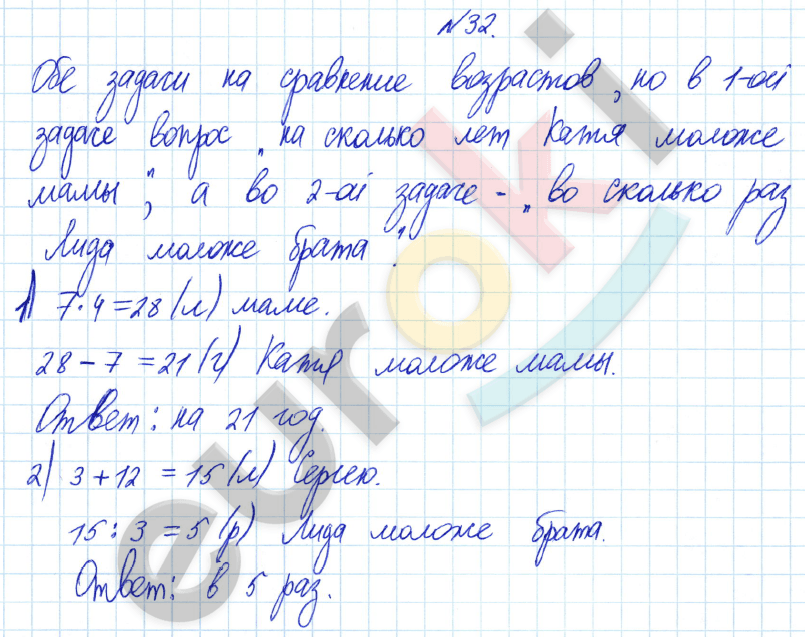 №32.
Обе задачи на сравнение возрастов, но в 1-ой
задаче вопрос „на сколько лет Катя моложе
мамы", а во 2-ой задаче - „во сколько раз
Лида моложе брата".
1) 7·4=28 (л) маме.
28-7=21 (г) Катя моложе мамы.
Ответ: на 21 год.
2) 3+12=15 (л) Сергею.
15:3=5 (р) Лида моложе брата.
Ответ: в 5 раз.
euroki